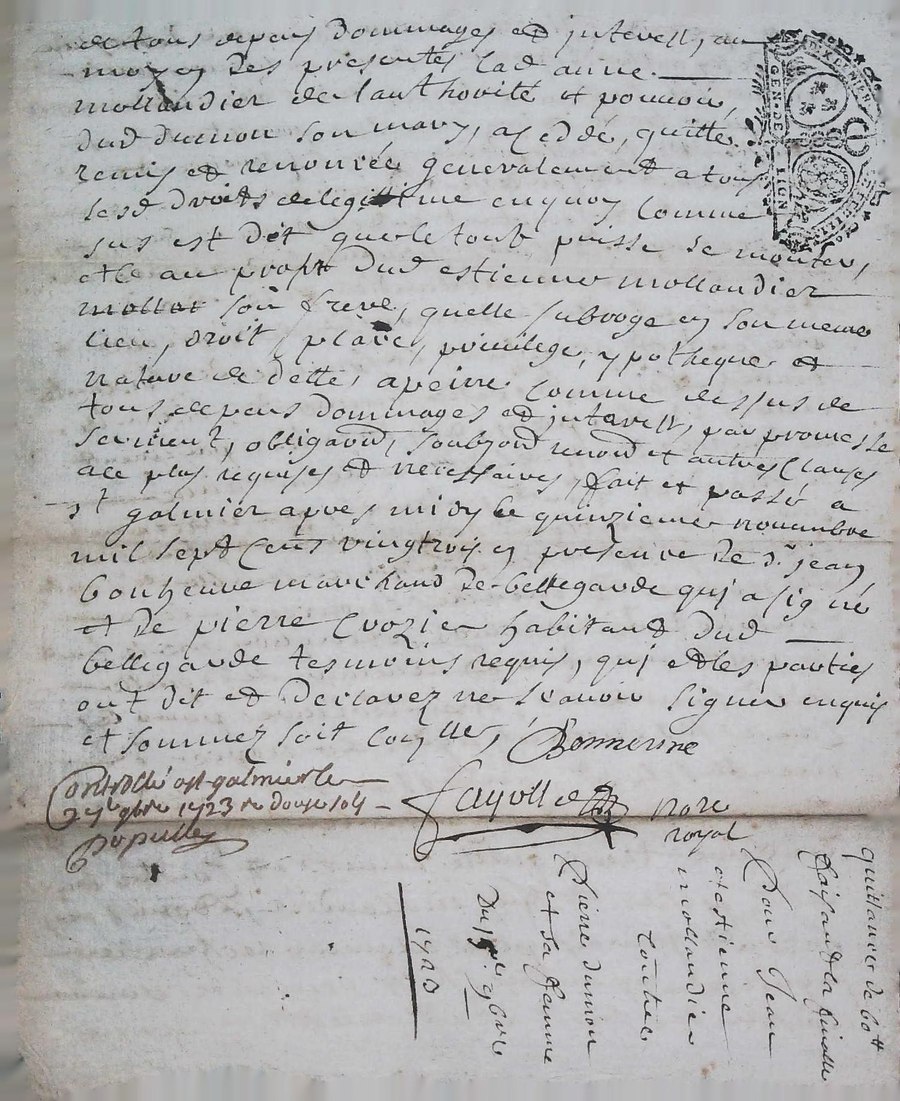 de tous depens dommages et interest, au
moyen des presentes lad anne
mollandier de lauthorité et pouvoir,
dud dumon son mary, a ceddé, quitté
remis et renoncée generalement a tous
sesd droits de legittime en quoy comme
sus est dit que le tout puisse se monter,
et ce au profit dud estienne mollandier
son frere, quelle subroge en son meme
lieu, droit place, privilege, ypotheque et
nature de dette, a peine comme dessus de
tous depens dommages et interest, par promesse
serment, obligaon, soubzon renon et autres clauses
a ce plus requises et necessaires, fait et passé a
st galmier apres midy le quinzieme novembre
mil sept cens vingtrois en presence de sr jean
bonheure marchand de bellegarde qui a signé
et de pierre Crozier habitand dud
bellegarde tesmoins requis, qui et les parties
ont dit et declarez ne scavoir signer enquis
et sommez soit
Fayolle nore
royal
Controllé a st galmier le
9bre 1723 re douze sols
quittances de
Pour Jean
et estienne
mollandier
Contre
Pierre dumon
et sa femme
Du 15e 9bre
1723
GEN·DE LION